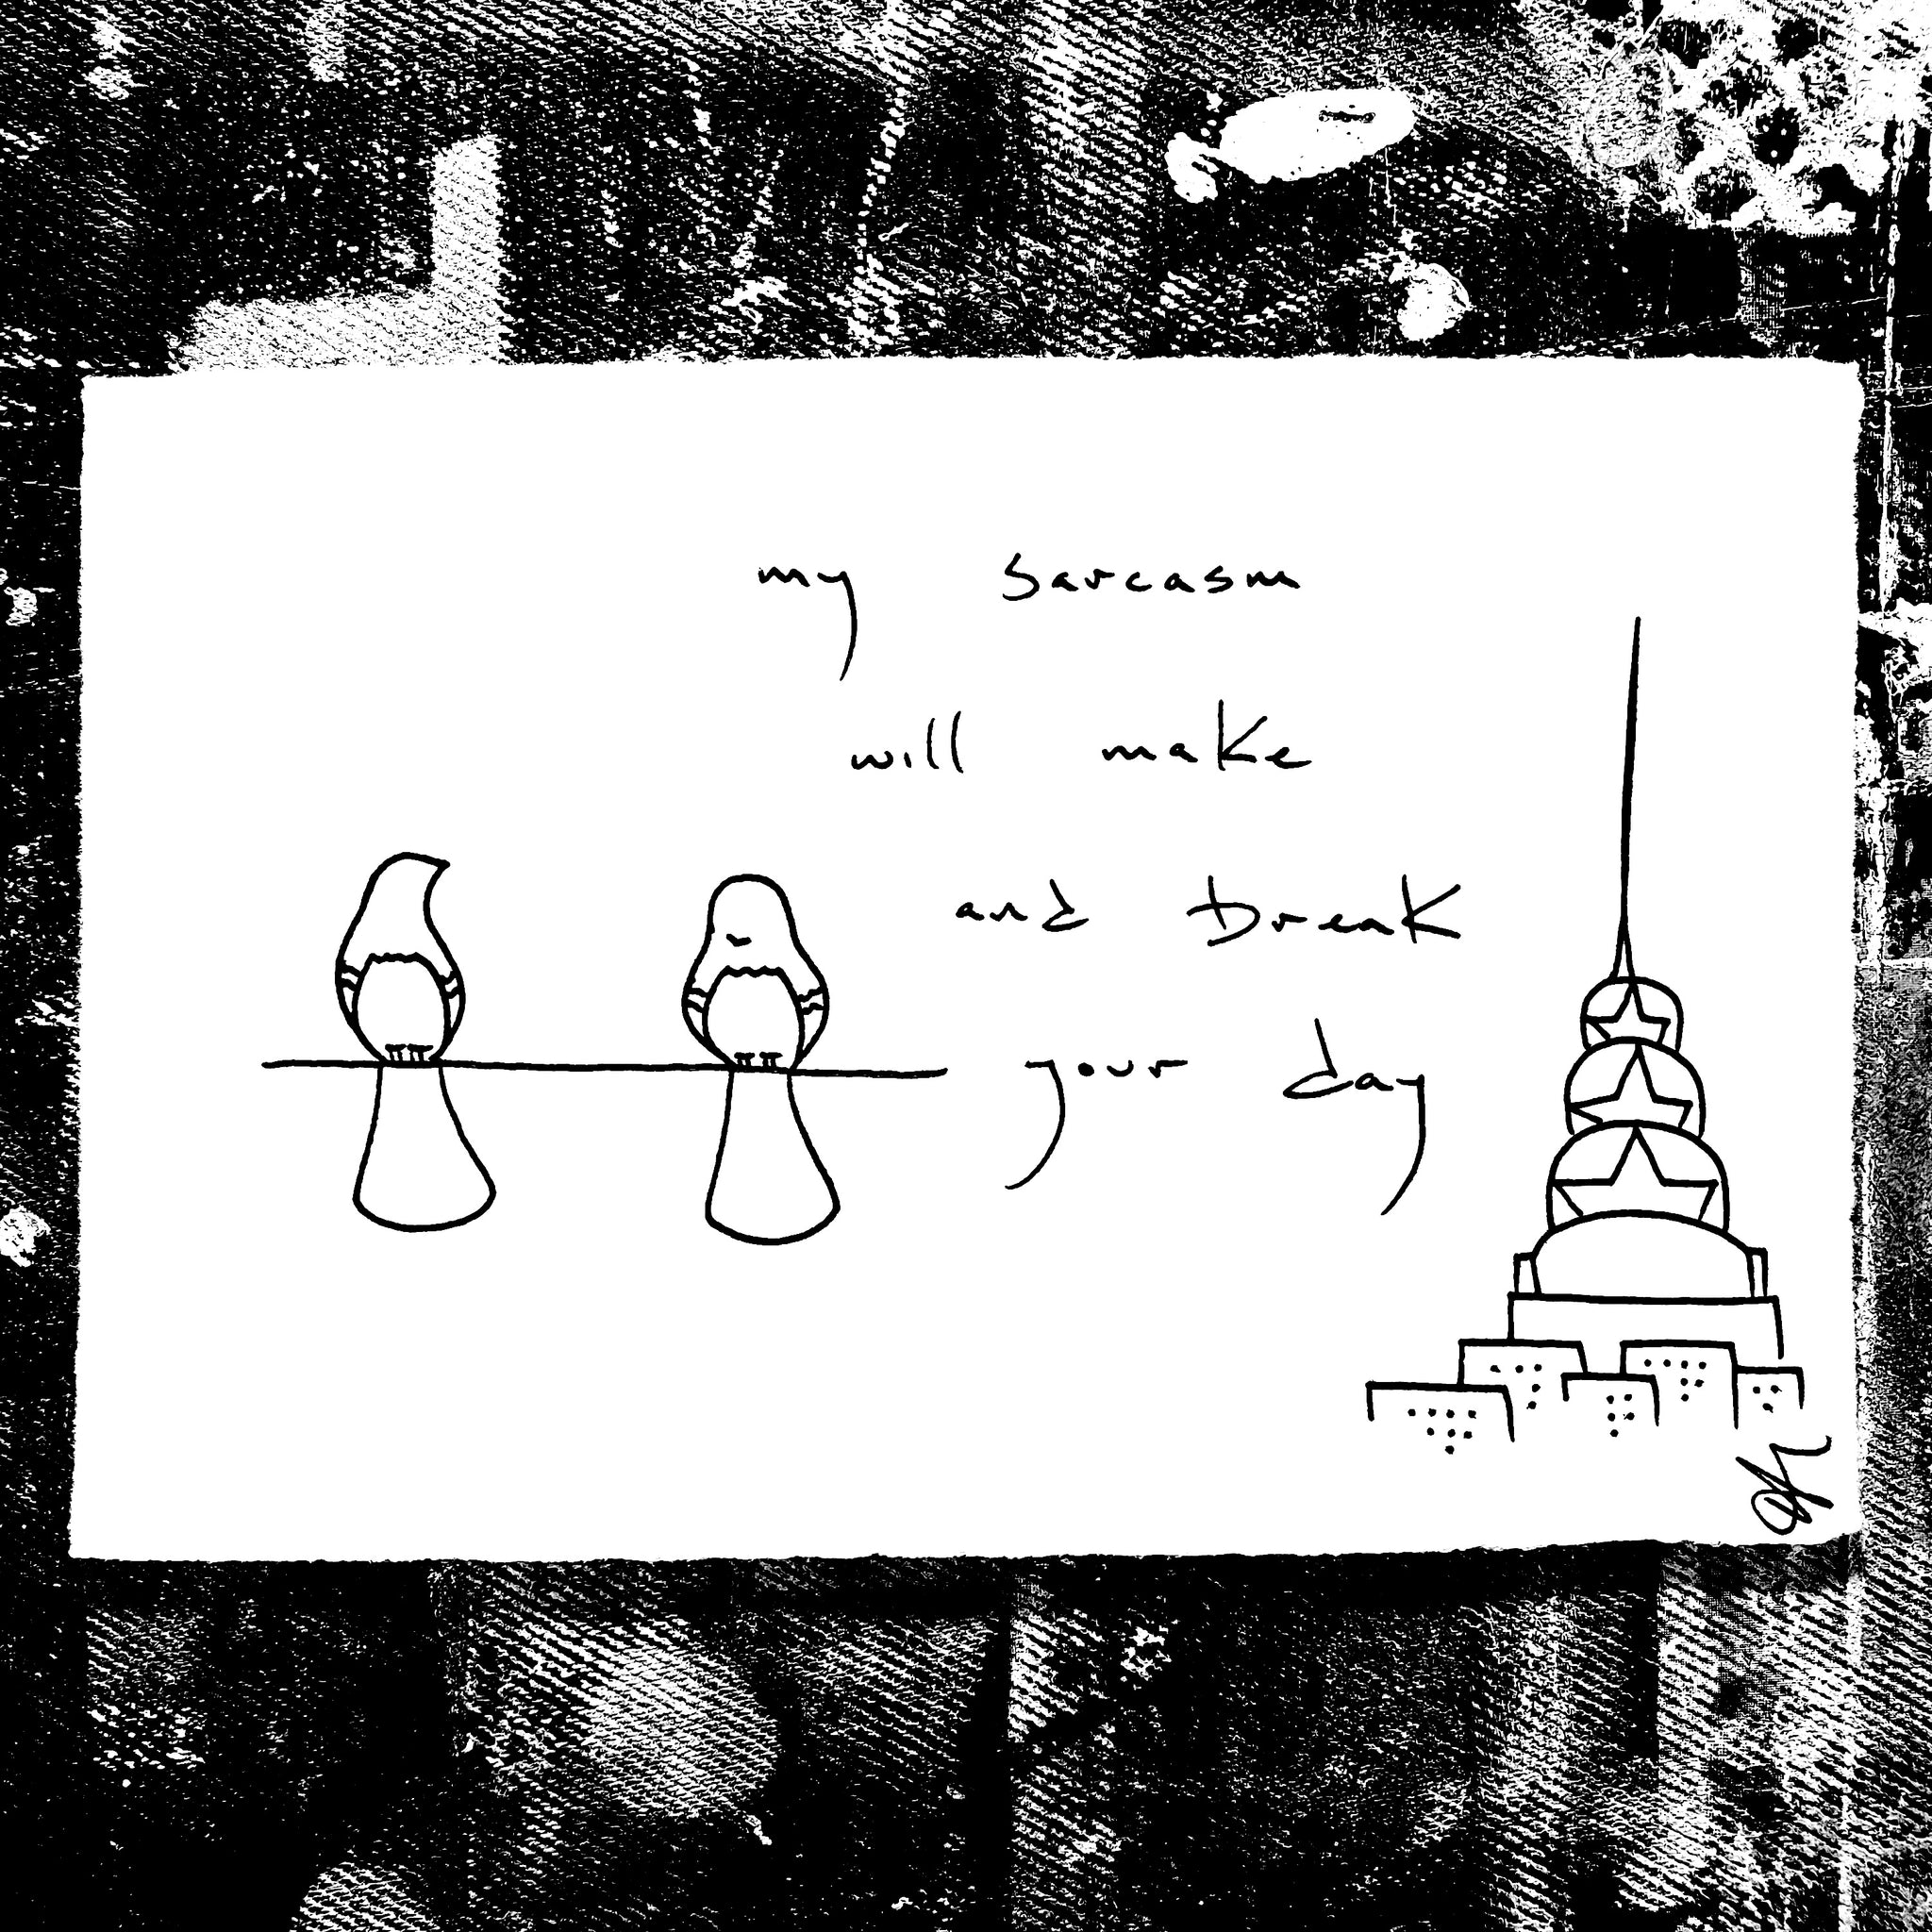 my sarcasm
will make
and break
your day